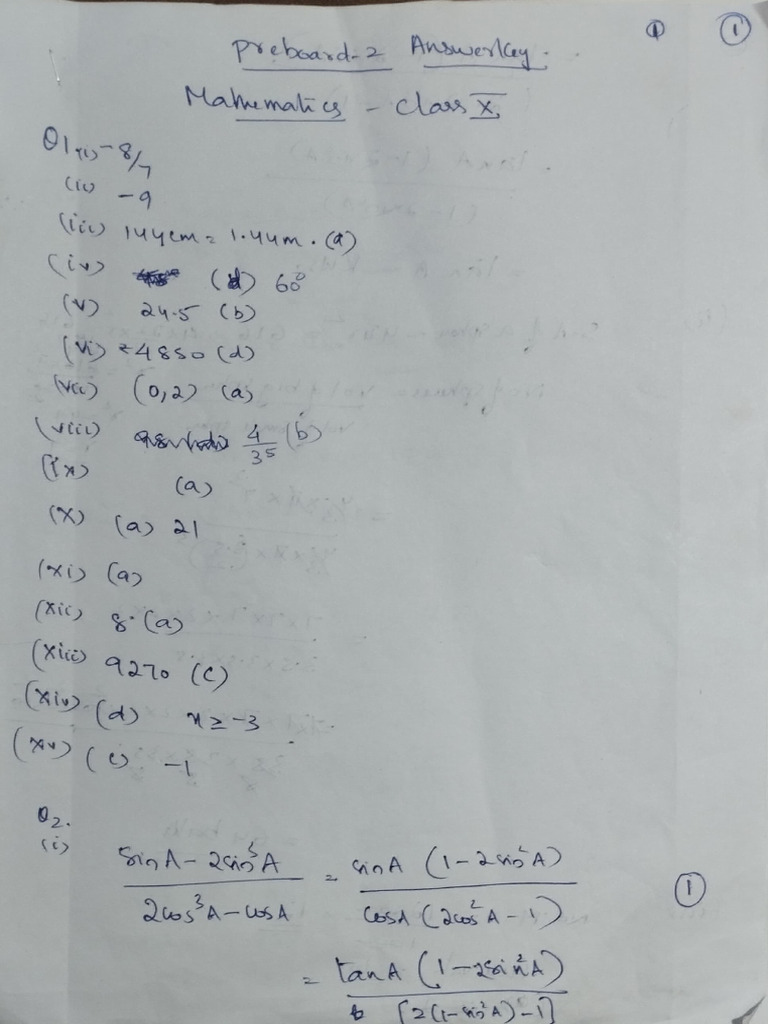 ① ①
Preboard-2 Answerkey.
Mathematics - class X,
Q1 (i) - 8/7
(ii) -9
(iii) 144cm = 1.44m. (a)
(iv) (d) 60°
(v) 24.5 (b)
(vi) 4850 (d)
(vii) (0,2) (a)
(viii) 4/35 (b)
(ix) (a)
(x) (a) 21
(xi) (a)
(xii) 8. (a)
(xiii) 9270 (c)
(xiv) (d) x ≥ -3
(xv) (c) -1
Q2.
(i) (sinA - 2sin³A)/(2cos³A - cosA) = sinA (1 - 2sin²A)/cosA (2cos²A - 1) ①
= tanA (1 - 2sin²A)/[2(1-sin²A) -1]